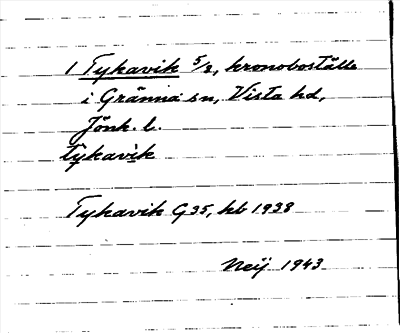 1 Tykavik 5/8, kronoboställe
i Gränna sn, Vista hd,
Jönk. l.
tykavik
Tykavik G35, hb 1938
Neij 1943